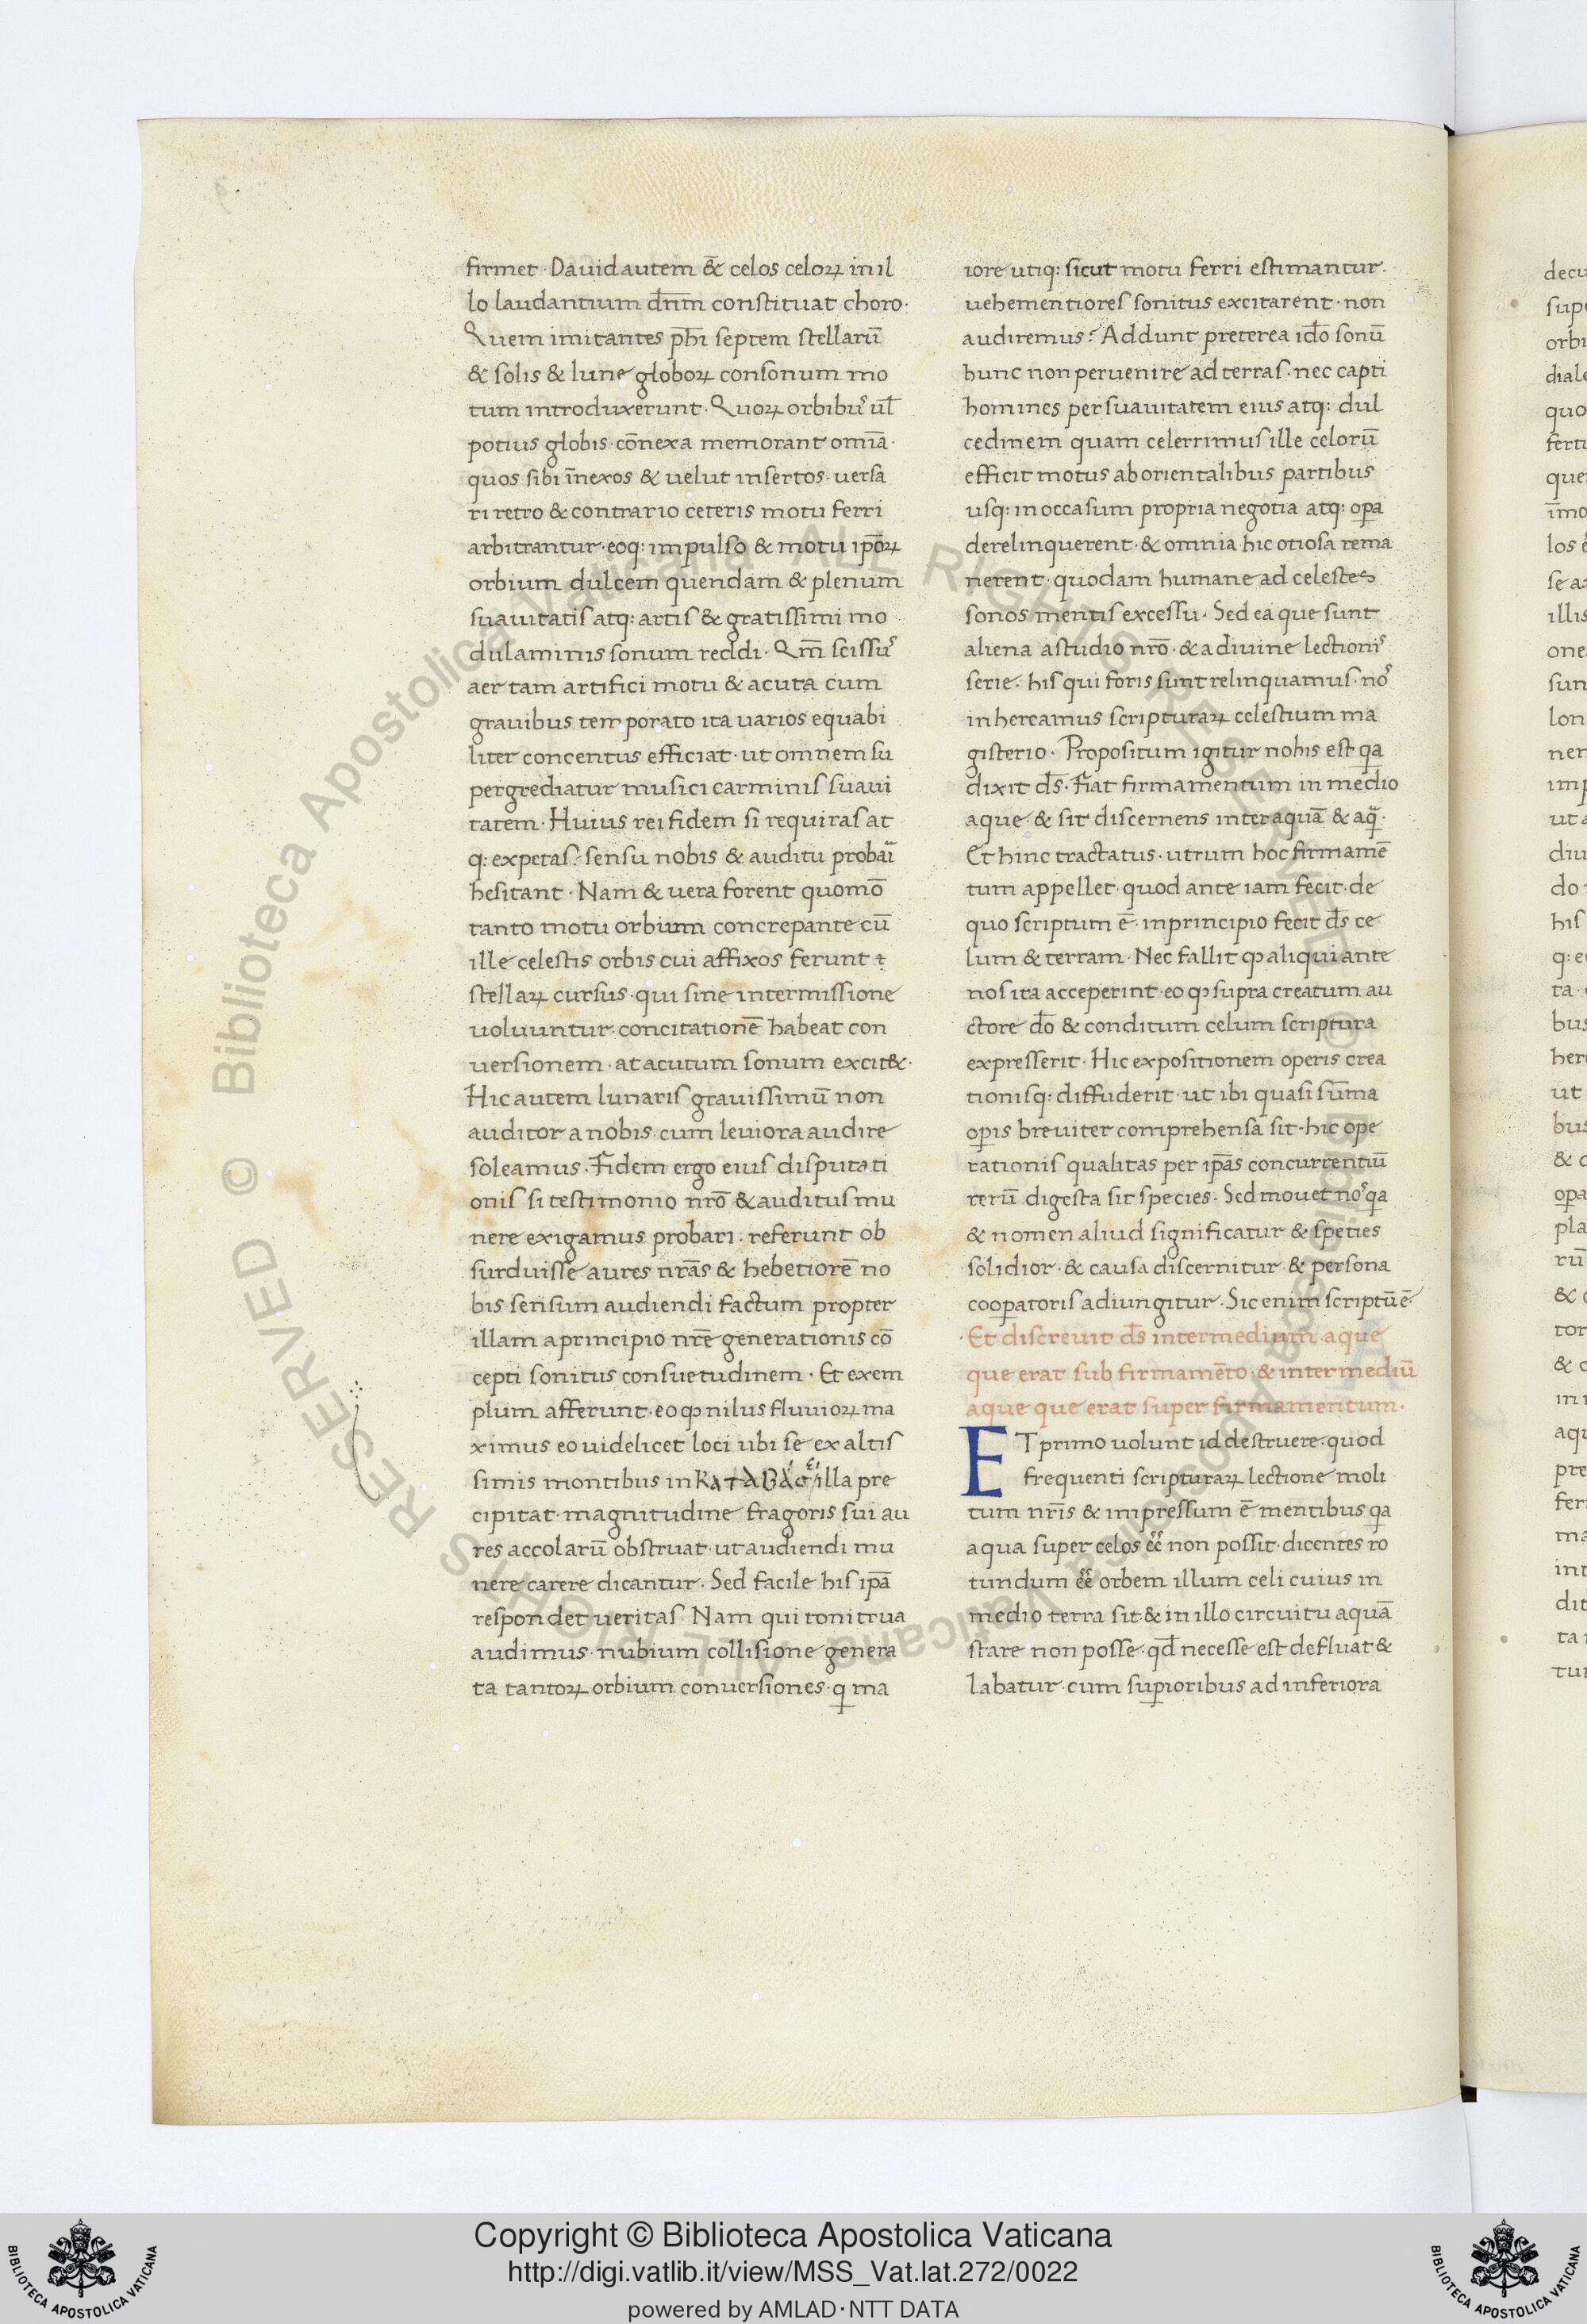 firmet · Dauid autem &̄ celos celoꝝ in il
lo laudantium dn̄m constituat choro·
Quem imitantes ph̄i septem stellarū
& solis & lune globoꝝ consonum mo
tum introduxerunt · Quoꝝ orbibuˢ ul̄
potius globis · cōnexa memorant omīa·
quos sibi īnexos & uelut insertos · uersa
ri retro & contrario ceteris motu ferri
arbitrantur · eoq: impulso & motu ip̄oꝝ
orbium dulcem quendam & plenum
suauitatis atq: artis & gratissimi mo
dulaminis sonum reddi · Qm̄ scissuˢ
aer tam artifici motu & acuta cum
grauibus temporato ita uarios equabi
liter concentus efficiat · ut omnem su
pergrediatur musici carminis suaui
tatem · Huius rei fidem si requiras at
q: expetas: sensu nobis & auditu probāi
hesitant · Nam & uera forent quomō
tanto motu orbium concrepante cū
ille celestis orbis cui affixos ferunt ⁊
stellaꝝ cursus · qui sine intermissione
uoluuntur · concitationē habeat con
uersionem · at acutum sonum excit&·
Hic autem lunaris grauissimū non
auditor a nobis · cum leuiora audire
soleamus · Fidem ergo eius disputati
onis si testimonio nr̄o & auditus mu
nere exigamus probari : referunt ob
surduisse aures nr̄as & hebetiorē no
bis sensum audiendi factum propter
illam a principio nr̄e generationis cō
cepti sonitus consuetudinem · Et exem
plum afferunt · eo ꝙ nilus fluuioꝝ ma
ximus eo uidelicet loci ubi se ex altis
simis montibus in illa pre
cipitat · magnitudine fragoris sui au
res accolarū obstruat · ut audiendi mu
nere carere dicantur · Sed facile his ip̄a
respondet ueritas · Nam qui tonitrua
audimus · nubium collisione genera
ta tantoꝝ orbium conuersiones · q̱ ma
iore utiq: sicut motu ferri estimantur·
uehementiores sonitus excitarent · non
audiremus? Addunt preterea id̄o sonū
hunc non peruenire ad terras · nec capti
homines per suauitatem eius atq: dul
cedinem quam celerrimus ille celorū
efficit motus ab orientalibus partibus
usq: in occasum propria negotia atq: oꝑa
derelinquerent · & omnia hic otiosa rema
nerent · quodam humane ad celestes
sonos mentis excessu · Sed ea que sunt
aliena a studio nr̄o · & a diuine lectioniˢ
serie · his qui foris sunt relinquamus · noˢ
inhereamus scripturaꝝ celestium ma
gisterio · Propositum igitur nobis est q̱a
dixit d̄s · Fiat firmamentum in medio
aque · & sit discernens inter aquā & aq̄·
Et hinc tractatus · utrum hoc firmamē
tum appellet · quod ante iam fecit · de
quo scriptum ē · in principio fecit d̄s ce
lum & terram · Nec fallit ꝙ aliqui ante
nos ita acceperint · eo ꝙ supra creatum au
ctore d̄o & conditum celum scriptura
expresserit · Hic expositionem operis crea
tionisq: diffuderit · ut ibi quasi sūma
oꝑis breuiter comprehensa sit · hic ope
rationis qualitas per ip̄as concurrentiū
rerū digesta sit species · Sed mouet noˢ q̱a
& nomen aliud significatur & speties
solidior · & causa discernitur & persona
cooꝑatoris adiungitur · Sic enim scriptū ē·
· Et discreuit d̄s intermedium aque
que erat sub firmamēto · & intermediū
aque que erat super firmamentum·
ET primo uolunt id destruere · quod
frequenti scripturaꝝ lectione moli
tum nr̄is & impressum ē mentibus q̱a
aqua super celos ēē non possit · dicentes ro
tundum ēē orbem illum celi cuius in
medio terra sit · & in illo circuitu aquā
stare non posse · qd̄ necesse est defluat &
labatur · cum suꝑioribus ad inferiora
Copyright © Biblioteca Apostolica Vaticana
http://digi.vatlib.it/view/MSS_Vat.lat.272/0022
powered by AMLAD·NTT DATA